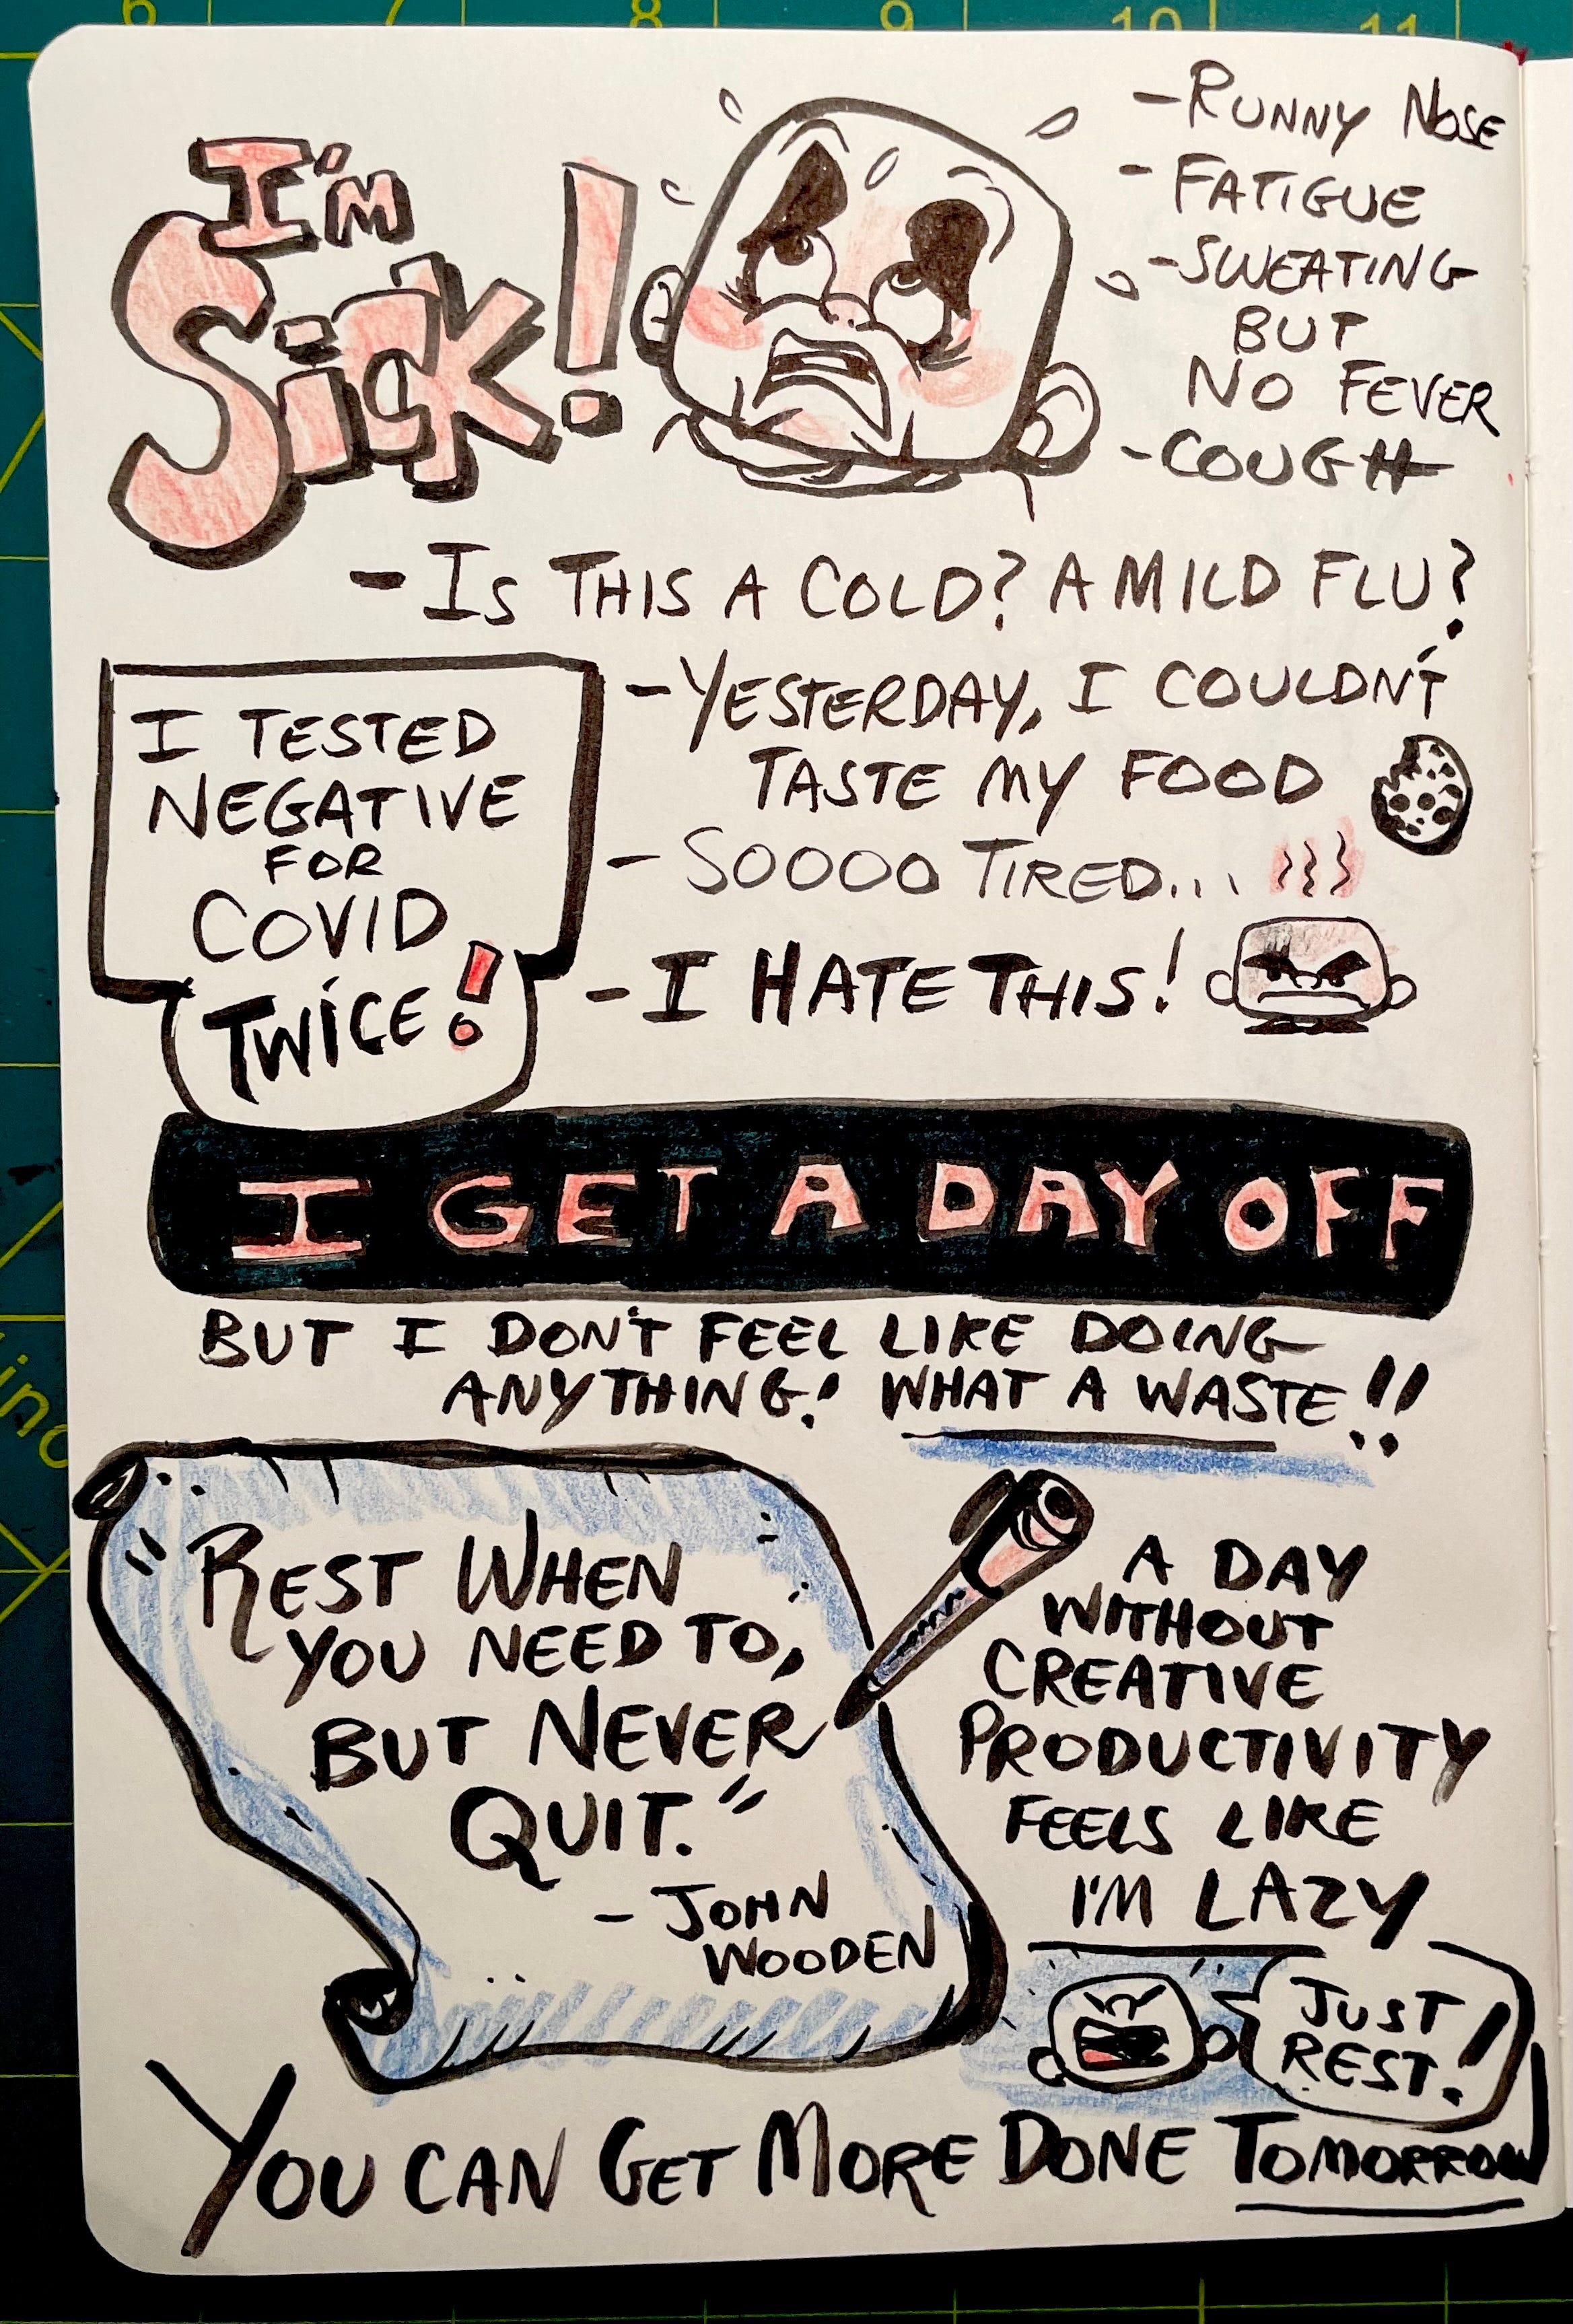 6 7 8 9 10 11
I'm
Sick!
- RUNNY NOSE
- FATIGUE
- SWEATING
BUT
NO FEVER
- COUGH
- IS THIS A COLD? A MILD FLU?
I TESTED
NEGATIVE
FOR
COVID
TWICE!
- YESTERDAY, I COULDN'T
TASTE MY FOOD
- SOOOO TIRED...
- I HATE THIS!
I GET A DAY OFF
BUT I DON'T FEEL LIKE DOING
ANYTHING! WHAT A WASTE!!
REST WHEN
YOU NEED TO,
BUT NEVER
QUIT."
- JOHN
WOODEN
A DAY
WITHOUT
CREATIVE
PRODUCTIVITY
FEELS LIKE
I'M LAZY
JUST
REST!
YOU CAN GET MORE DONE TOMORROW